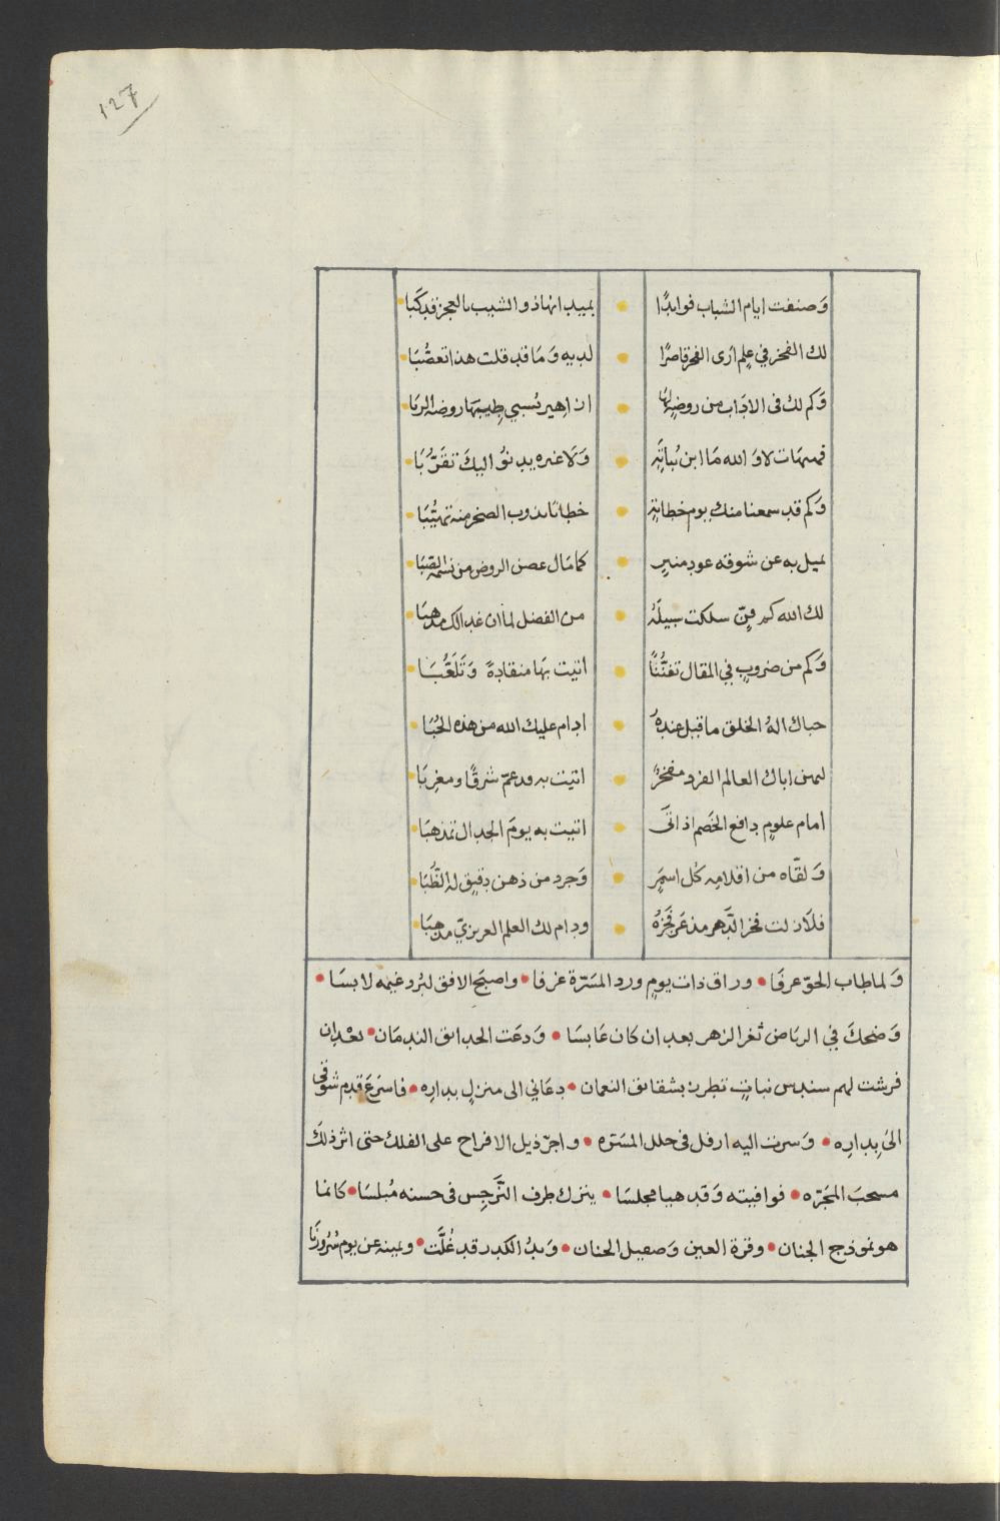 127
وَصنفت ايام الشباب فوايدًا • بميدانها ذو الشيب بالعجز قد كَبا
لك الفخر في علمٍ ارى الفخر قاصرًا • لديه وَمَا قد قلت هذا تعصُّبَا
وَكم لك فى الادَاب من روضةٍ لهَا • ازاهير تسبي طيبهَا روضة الربَا
فهيهات لاوَالله مَا ابن نُباتَة • وَلَا غيره يدنوُ اليكَ تقَرُّبَا
وَكم قد سمعنا منك يوم خطابةٍ • خطابًا يذوب الصخر منه تهيُّبَا
يميل به عن شوقه عود منبرٍ • كما مَال غصن الروض من نسمة الصَّبَا
لك الله كم فنٍّ سلكت سبيلَهُ • من الفضل لما ان غدا لك مذهبَا
وَكم من ضروبٍ في المقال تفنُّنًا • اتيت بهَا منقادةً وَتَلَعُّبَا
حباك الهُ الخلق ما قبل عندهُ • ادام عليك الله من هذه الحُبَا
ليهن اباك العالم الفرد مفخرٌ • اتيت به قد عمّ شرقًا ومغربَا
امام علومٍ دافع الخَصم اذ اتَى • اتيت به يومَ الجدال تمذهبَا
وَلقّاه من اقلامه كل اسمرٍ • وَجرد من ذهن دقيق له الظُّبَا
فلَا زلت فخر الدَّهر مذ عَز فَخرُهُ • ودام لك العلم العزيزيّ مذهبَا
وَلما طاب الحقّ عرفَا • وراق ذات يومٍ ورد المسَرّة غرفا • واصبحَ الافق لبُرد غيمه لابسَا •
وَضحكَ في الريَاض ثغر الزهر بعد ان كان عَابسَا • وَدعَت الحدائق الندمَان • بعْد ان
فرشت لهم سندس نباتٍ تطرز بشقائق النعمان • دعَاني الى منزلٍ بدارِه • فاسرَعَ قدم شوقي
الىَ بدارِه • وَسرت اليه ارفل فى حلل المسَرّه • واجرّ ذيل الافراح على الفلك حتى اثر ذلَك
مسحبَ المجَرّه • فوافيته وَقد هيا مجلسَا • يترك طرف النَّرجِس فى حسنه مُبلسَا • كَانما
هو نموذج الجنان • وقرة العين وَصقيل الجنان • وَيدُ الكدر قد غُلَّت • وغيبته عن يوم سُرُورنَا